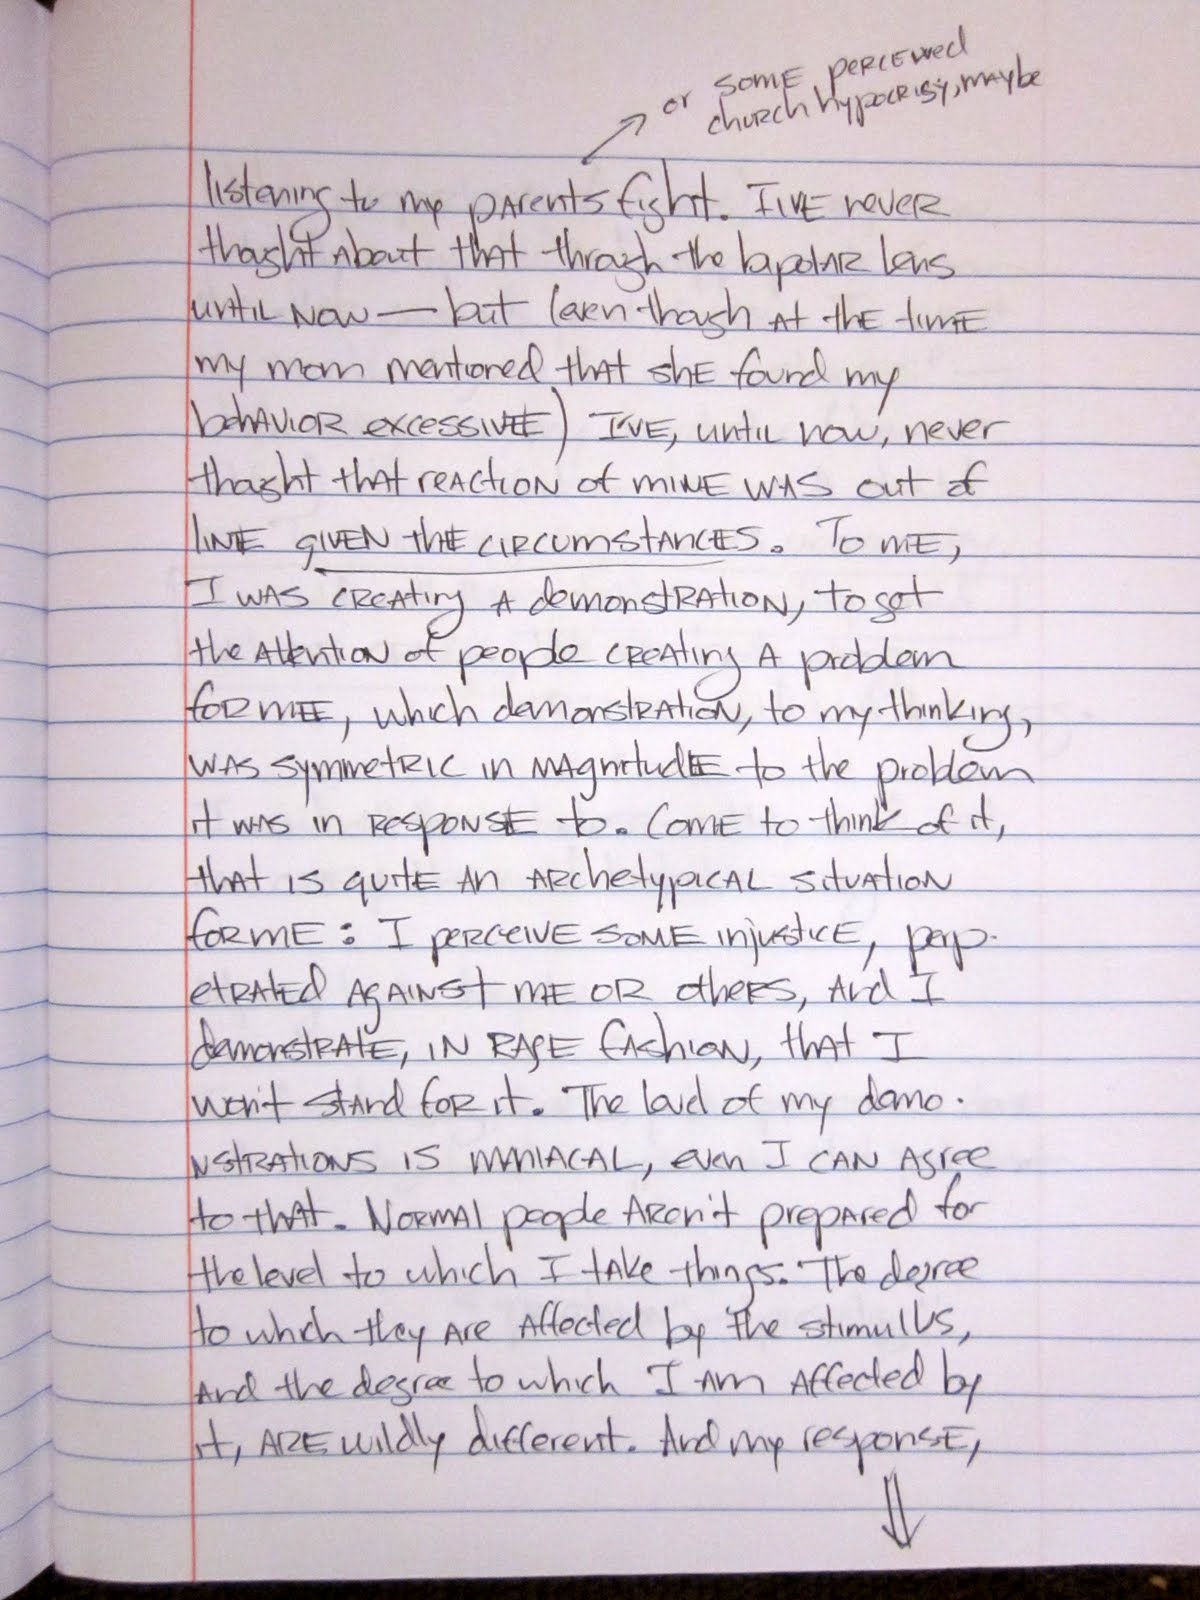 or some perceived
church hypocrisy, maybe
listening to my parents fight. I've never
thought about that through the bipolar lens
until now — but (even though at the time
my mom mentioned that she found my
behavior excessive) I've, until now, never
thought that reaction of mine was out of
line given the circumstances. To me,
I was creating a demonstration, to get
the attention of people creating a problem
for me, which demonstration, to my thinking,
was symmetric in magnitude to the problem
it was in response to. Come to think of it,
that is quite an archetypical situation
for me: I perceive some injustice, perp-
etrated against me or others, and I
demonstrate, in rage fashion, that I
won't stand for it. The level of my demo-
nstrations is maniacal, even I can agree
to that. Normal people aren't prepared for
the level to which I take things. The degree
to which they are affected by the stimulus,
and the degree to which I am affected by
it, are wildly different. And my response,